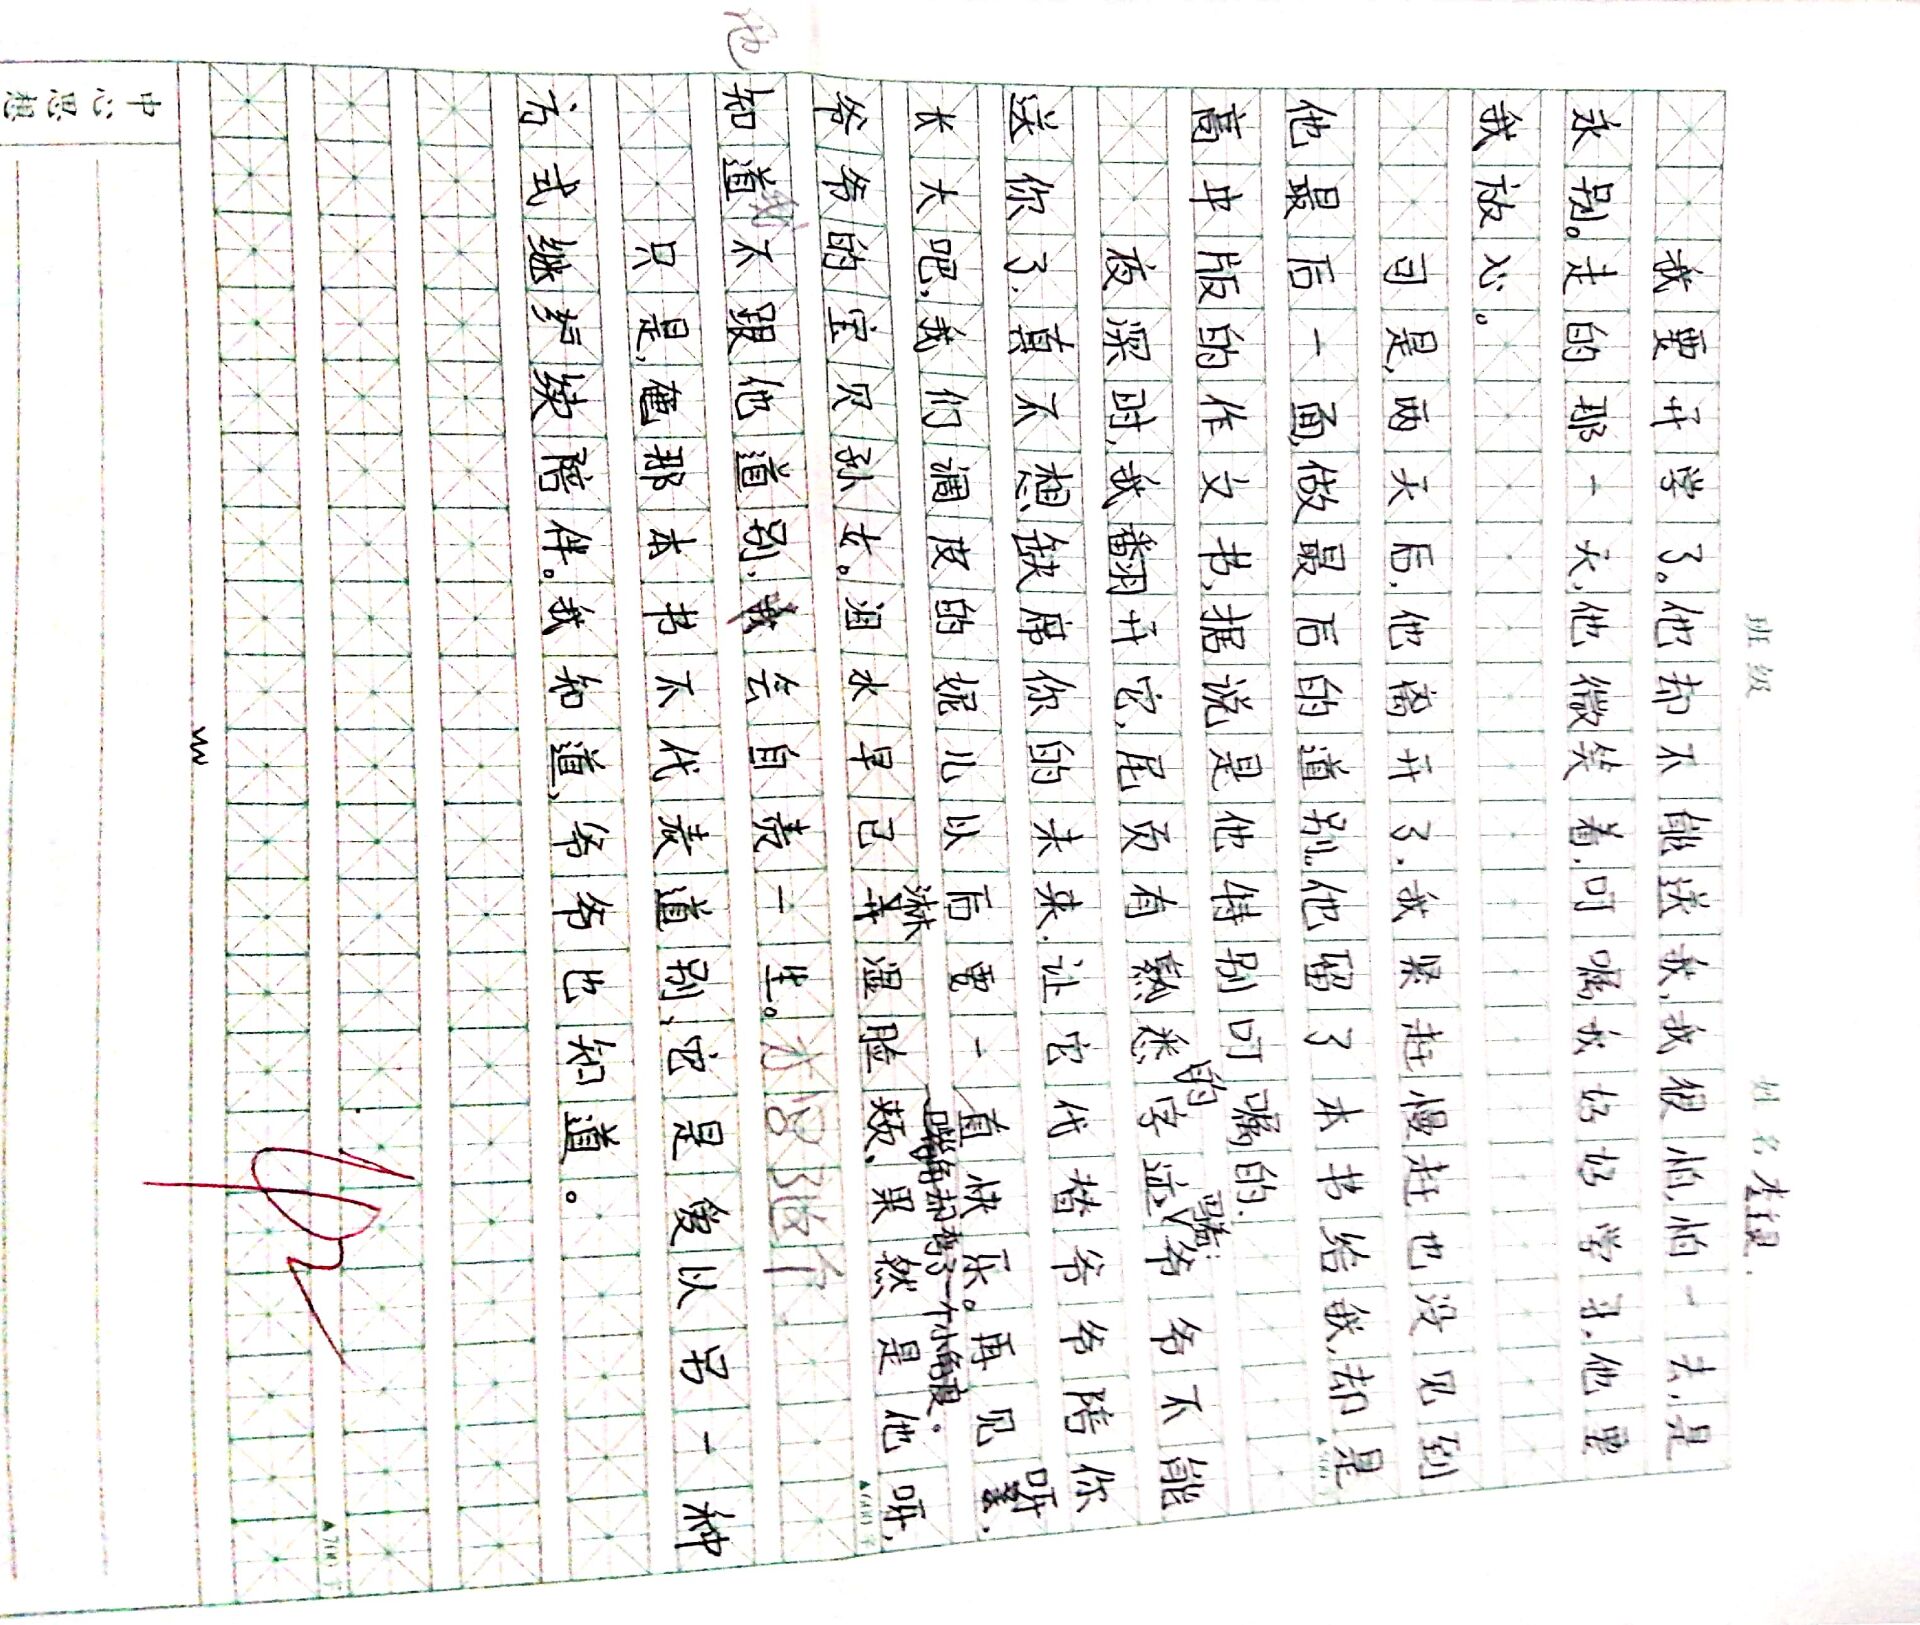 班级
姓名
我要升学了。他却不能送我,我很怕,怕一去,是
永别。走的那一天,他微笑着,叮嘱我好好学习,他要
我放心。
可是,两天后,他离开了,我紧赶慢赶也没见到
他最后一面,做最后的道别。他留了本书给我,却是
高中版的作文书,据说是他特别叮嘱的.
夜深时,我翻开它,尾页有熟悉的字迹:爷爷不能
送你了,真不想缺席你的未来,让它代替爷爷陪你
长大吧,我们调皮的妮儿以后要一直快乐。再见呀,
爷爷的宝贝孙女。泪水早已淋湿脸颊,嘴角却弯了一个小角度。果然是他呀,
他知道不跟他道别,我会自责一生。
只是,他那本书不代表道别,它是爷以另一种
方式继续陪伴。我知道,爷爷也知道。
中心思想